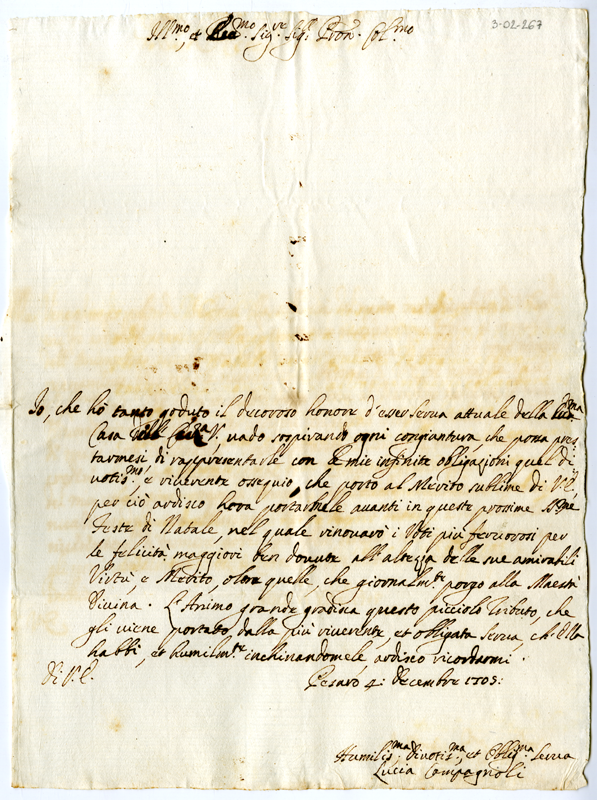 3-02-267
Ill.mo, et Rev.mo Sig.re Sig.r Pron. Col.mo
Io, che hò tanto goduto il decoroso honore d'esser serva attuale della
Casa V. vado sospirando ogni congiuntura che possa pres-
tarmesi di rappresentarle con le mie infinite obligazioni quel di
votis.mo, e riverente ossequio, che porto al Merito sublime di V.E.
per ciò ardisco hora portarmele avanti in queste prossime SS.me
Feste di Natale, nel quale rinovarò i Voti più fervorosi per
le felicità maggiori ben dovute all'altezza delle sue amirabili
Virtù, e Merito, oltre quelle, che giornalm.te porgo alla Maestà
Divina. L'Animo grande gradisca questo picciolo Tributo, che
gli viene portato dalla più riverente, et obligata serva, ch'Ella
habbi, et humilm.te inchinandomele ardisco ricordarmi.
Di V.E.
Pesaro 4: Decembre 1705:
Humilis.ma Divotis.ma, et Oblig.ma Serva
Lucia Campagnoli